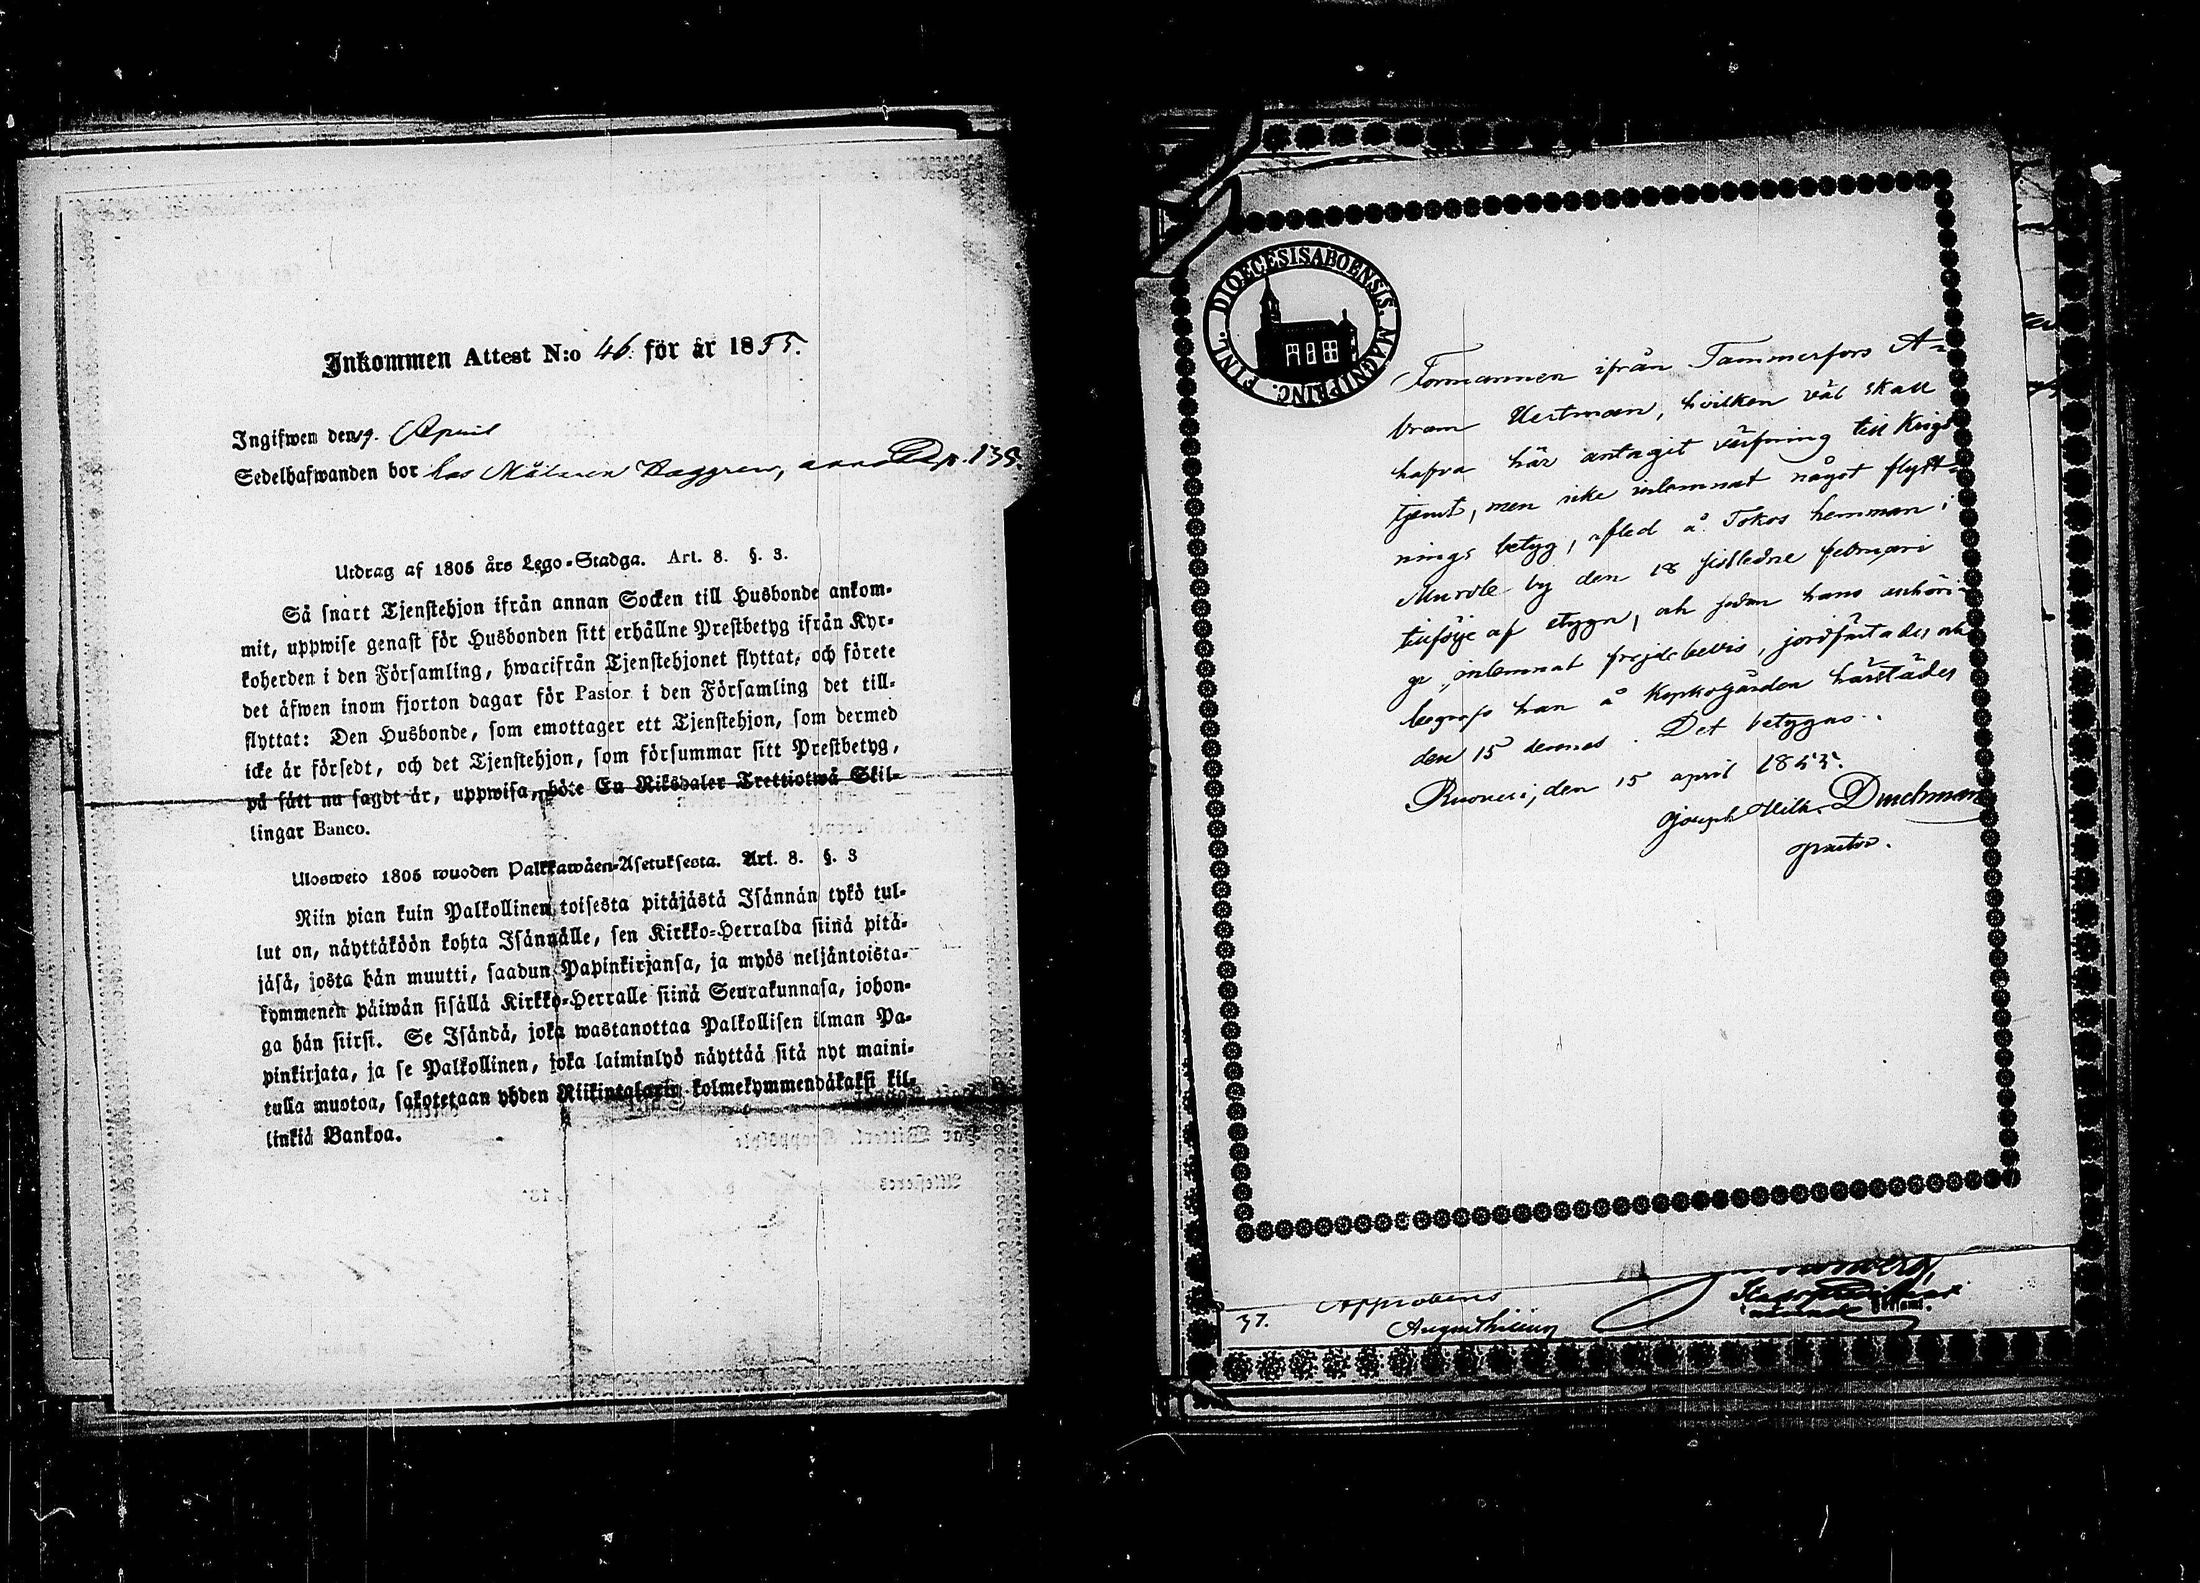 Inkommen Attest N:o 46. för år 1855.
Ingifwen den 19. April
Sedelhafwanden bor hos Målaren Haggren,
Utdrag af 1805 års Lego-Stadga. Art. 8. §. 3.
Så snart Tjenstehjon ifrån annan Socken till Husbonde ankom-
mit, uppwise genast för Husbonden sitt erhållne Prestbetyg ifrån Kyr-
koherden i den Församling, hwarifrån Tjenstehjonet flyttat, och förete
det äfwen inom fjorton dagar för Pastor i den Församling det till-
flyttat: Den Husbonde, som emottager ett Tjenstehjon, som dermed
icke är försedt, och det Tjenstehjon, som försummar sitt Prestbetyg,
på sätt nu sagdt är, uppwisa, böte En Riksdaler Trettiotwå Skil-
lingar Banco.
Ulosweto 1805 wuoden Palkkawäen-Asetuksesta. Art. 8. §. 3
Niin pian kuin Palkollinen toisesta pitäjästä Isännän tykö tul-
lut on, näyttäköön kohta Isännälle, sen Kirkko-Herralda siinä pitä-
jäsä, josta hän muutti, saadun Papinkirjansa, ja myös neljäntoista-
kymmenen päiwän sisällä Kirkko-Herralle siinä Seurakunnasa, johon-
ga hän siirsi. Se Isändä, joka wastanottaa Palkollisen ilman Pa-
pinkirjata, ja se Palkollinen, joka laiminlyö näyttää sitä nyt maini-
tulla muotoa, sakotetaan yhden Riikintalarin kolmekymmendäkaksi kil-
linkiä Bankoa.
DIOECESIS ABOENSIS. MAGNI PRINC. FINL.
Formannen ifrån Tammerfors A-
bram Hertman, hvilken väl skall
hafva här antagit värfning till Krigs
tjenst, men icke inlemnat något flytt-
nings betyg, afled å Tokos hemman i
Murole by den 18 sistledne februari
till följe af, och sedan hans anhöri-
ge inlemnat frejdebevis, jordfästades och
begrofs han å Kyrkogården härstädes
den 15 dennes. Det betygas.
Ruovesi, den 15 april 1855.
Joseph Wilh. Durchman
Pastor.
37. Approberas